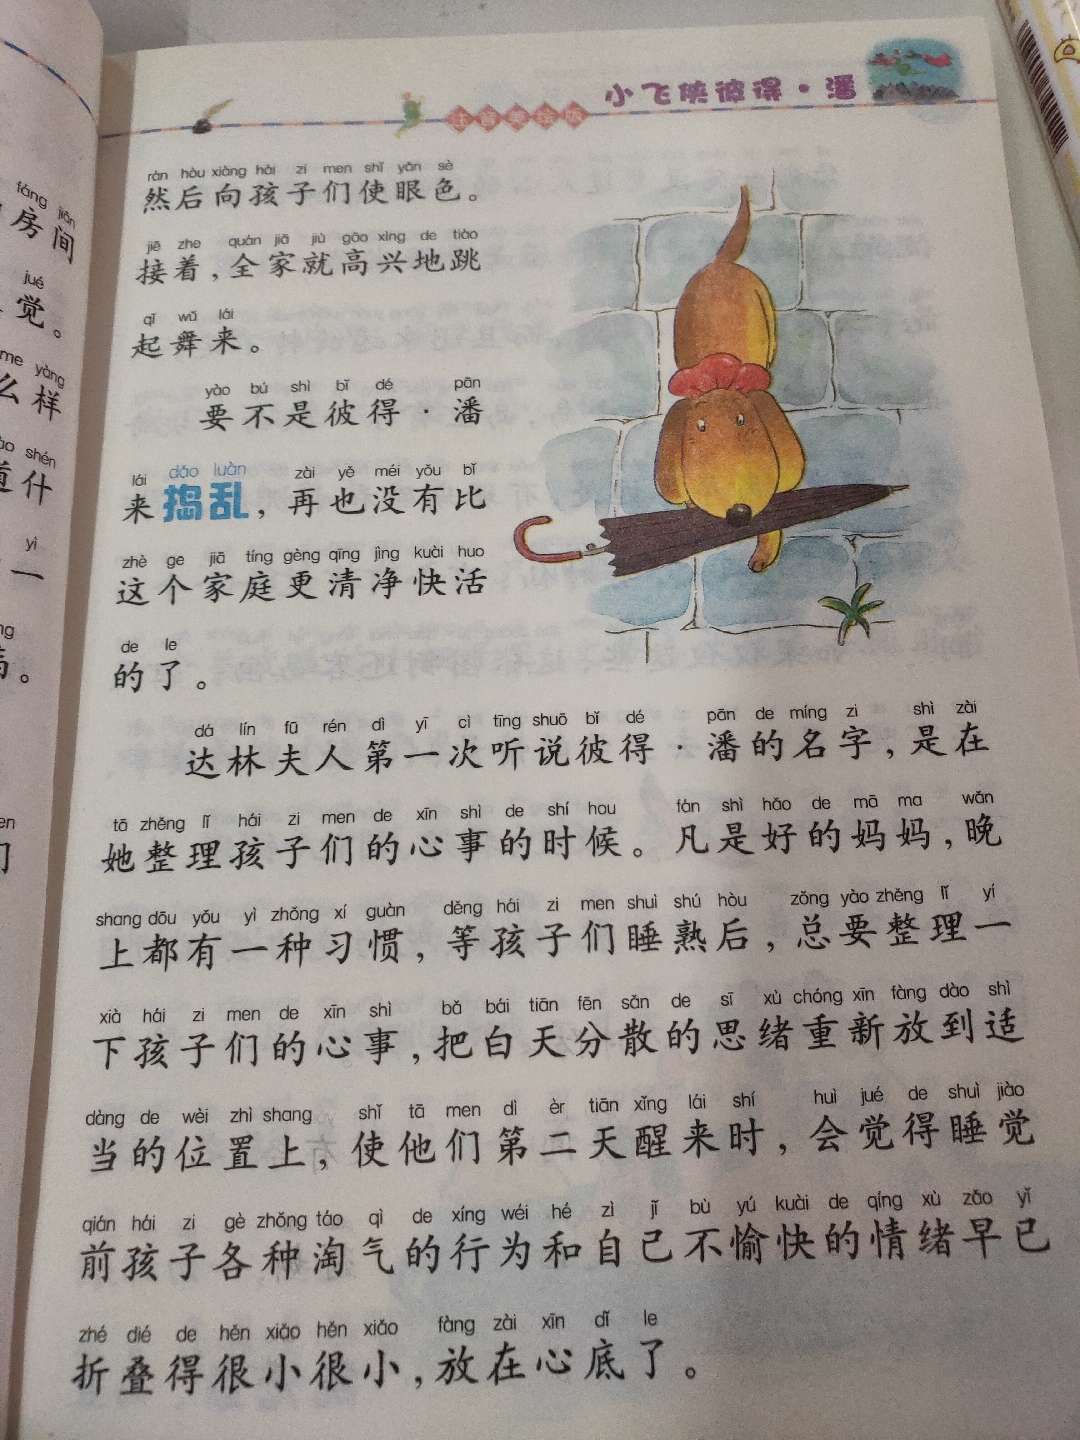 小飞侠彼得·潘
注音美绘版
rán hòu xiàng hái zi men shǐ yǎn sè
然后向孩子们使眼色。
jiē zhe quán jiā jiù gāo xìng de tiào
接着，全家就高兴地跳
qǐ wǔ lái
起舞来。
yào bú shì bǐ dé pān
要不是彼得·潘
lái dǎo luàn zài yě méi yǒu bǐ
来捣乱，再也没有比
zhè ge jiā tíng gèng qīng jìng kuài huo
这个家庭更清净快活
de le
的了。
dá lín fū rén dì yī cì tīng shuō bǐ dé pān de míng zi shì zài
达林夫人第一次听说彼得·潘的名字，是在
tā zhěng lǐ hái zi men de xīn shì de shí hou fán shì hǎo de mā ma wǎn
她整理孩子们的心事的时候。凡是好的妈妈，晚
shang dōu yǒu yì zhǒng xí guàn děng hái zi men shuì shú hòu zǒng yào zhěng lǐ yí
上都有一种习惯，等孩子们睡熟后，总要整理一
xià hái zi men de xīn shì bǎ bái tiān fēn sǎn de sī xù chóng xīn fàng dào shì
下孩子们的心事，把白天分散的思绪重新放到适
dàng de wèi zhì shang shǐ tā men dì èr tiān xǐng lái shí huì jué de shuì jiào
当的位置上，使他们第二天醒来时，会觉得睡觉
qián hái zi gè zhǒng táo qì de xíng wéi hé zì jǐ bù yú kuài de qíng xù zǎo yǐ
前孩子各种淘气的行为和自己不愉快的情绪早已
zhé dié de hěn xiǎo hěn xiǎo fàng zài xīn dǐ le
折叠得很小很小，放在心底了。
fáng jiān
房间
jué
觉。
me yàng
么样
shén
道什
yì
一